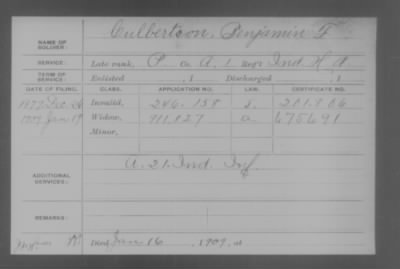 NAME OF SOLDIER: Culbertson, Benjamin F
SERVICE: Late rank, P. Co. A, 1 REG'T Ind. H. A
TERM OF SERVICE: Enlisted , 1 Discharged , 1
DATE OF FILING. CLASS. APPLICATION NO. LAW. CERTIFICATE NO.
1877 Dec 26 Invalid, 246.158
1909 Jan 19 Widow, 911.827 675691
Minor,
ADDITIONAL SERVICES: A. 21. Ind. Inf.
REMARKS:
Died Jan 16, 1909, at